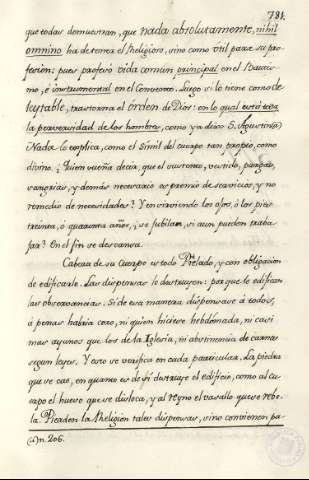 781.
que todas demuestran, que nada absolutamente, nihil
omnino ha de tener el Religioso, sino como util para su pro-
fesion: pues profesó vida comun principal en el Bautis-
mo, é instrumental en el Convento. Luego si lo tiene como de-
leytable, trastorna el órden de Dios: en lo qual está toda
la perversidad de los hombres, como ya dixo S. Agustin (1)
Nada lo explica, como el simil del cuerpo tan propio, como
divino. ¿Quien sueña decir, que el sustento, vestido, purgas,
sangrias, y demás necesario es premio de servicios, y no
remedio de necesidades? Y en sirviendo los ojos, ó los pies
treinta, ó quarenta años, ¿se jubilan, si aun pueden traba-
jar? En el fin se descansa.
Cabeza de su Cuerpo es todo Prelado, y con obligacion
de edificarle. Las dispensas lo destruyen: porque le edifican
las observancias. Si de esa manera dispensase á todos,
á penas habria coro, ni quien hiciese hebdómada, ni casi
mas ayunos que los de la Iglesia, ni abstinencia de carnes
segun leyes. Y esto se verifica en cada particular. La piedra
que se cae, en quanto es de sí destruye el edificio, como al cu-
erpo el hueso que se disloca, y al reyno el vasallo que se rebe-
la. Pierden la Religion tales dispensas, sino convienen pa-
(1) n. 206.